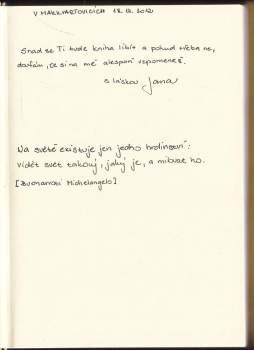 V MARKVARTOVICÍCH 18.12.2012
Snad se Ti bude kniha líbit a pokud třeba ne,
doufám, že si na mě alespoň vzpomeneš.
S láskou Jana
Na světě existuje jen jedno hrdinství:
vidět svět takový, jaký je, a milovat ho.
[Buonarroti Michelangelo]